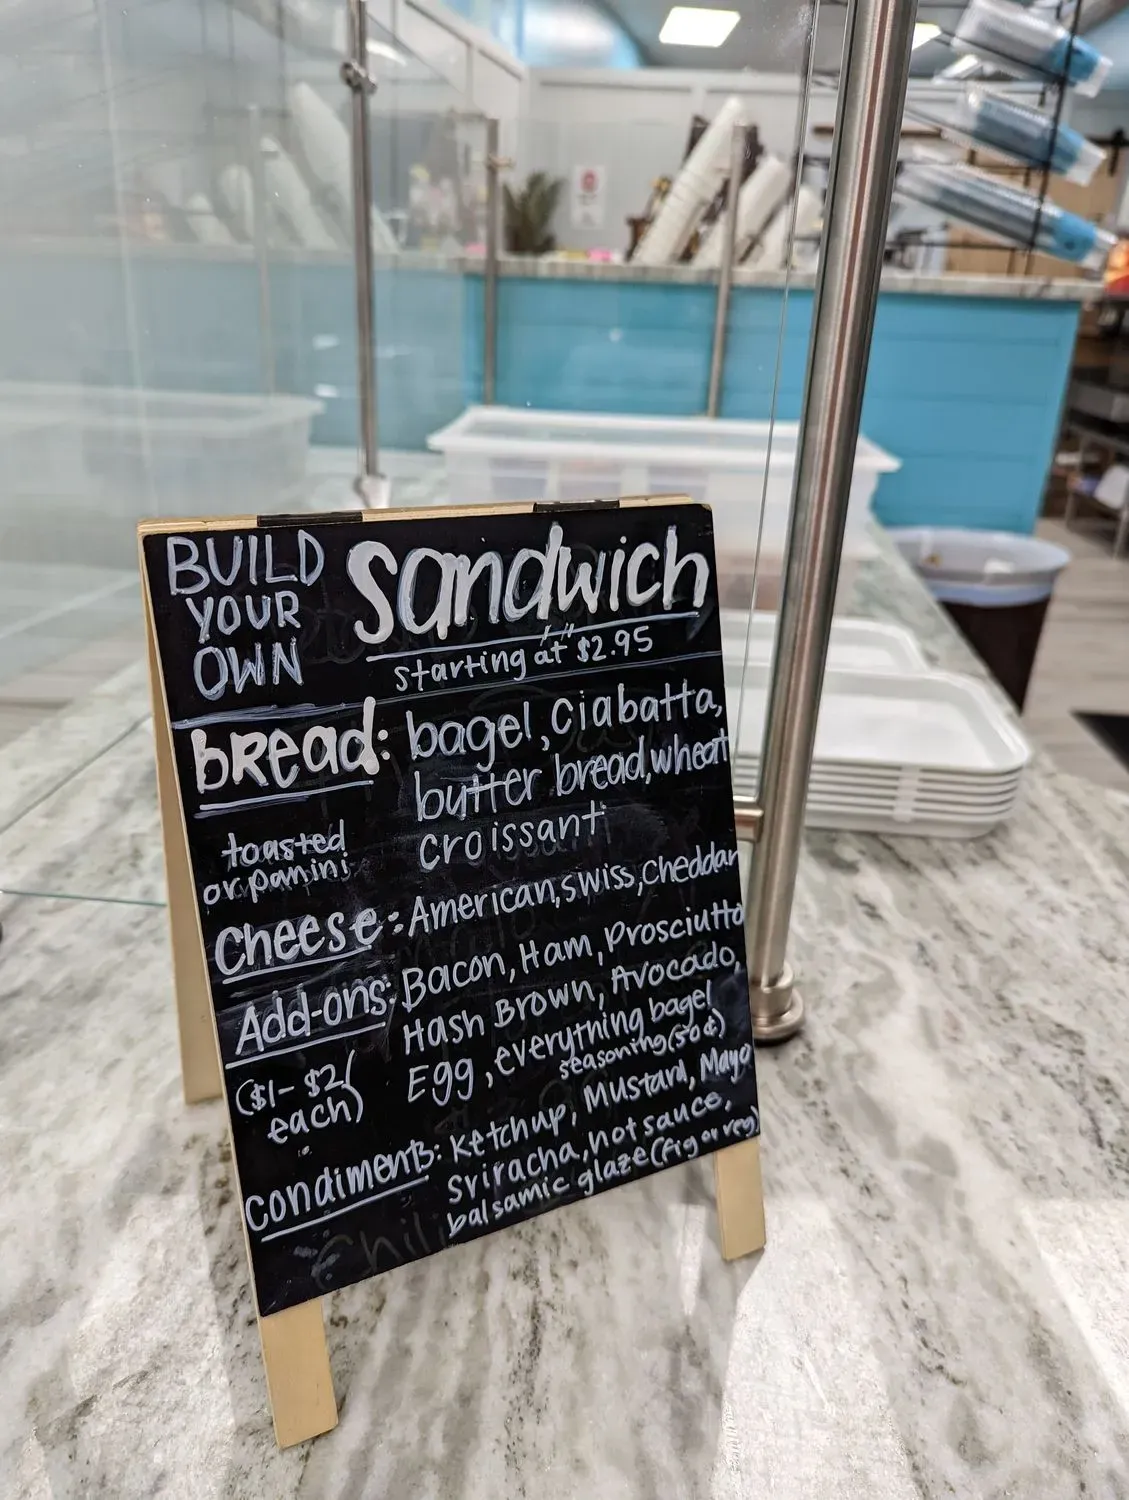 BUILD YOUR OWN
sandwich
starting at $2.95
bread: bagel, ciabatta,
butter bread, wheat
croissant
toasted
or panini
cheese: American, swiss, cheddar
Add-ons: Bacon, Ham, Prosciutto
Hash Brown, Avocado,
Egg, everything bagel
seasoning (50¢)
($1-$2
each)
condiments: Ketchup, Mustard, Mayo
sriracha, hot sauce,
balsamic glaze (fig or reg)